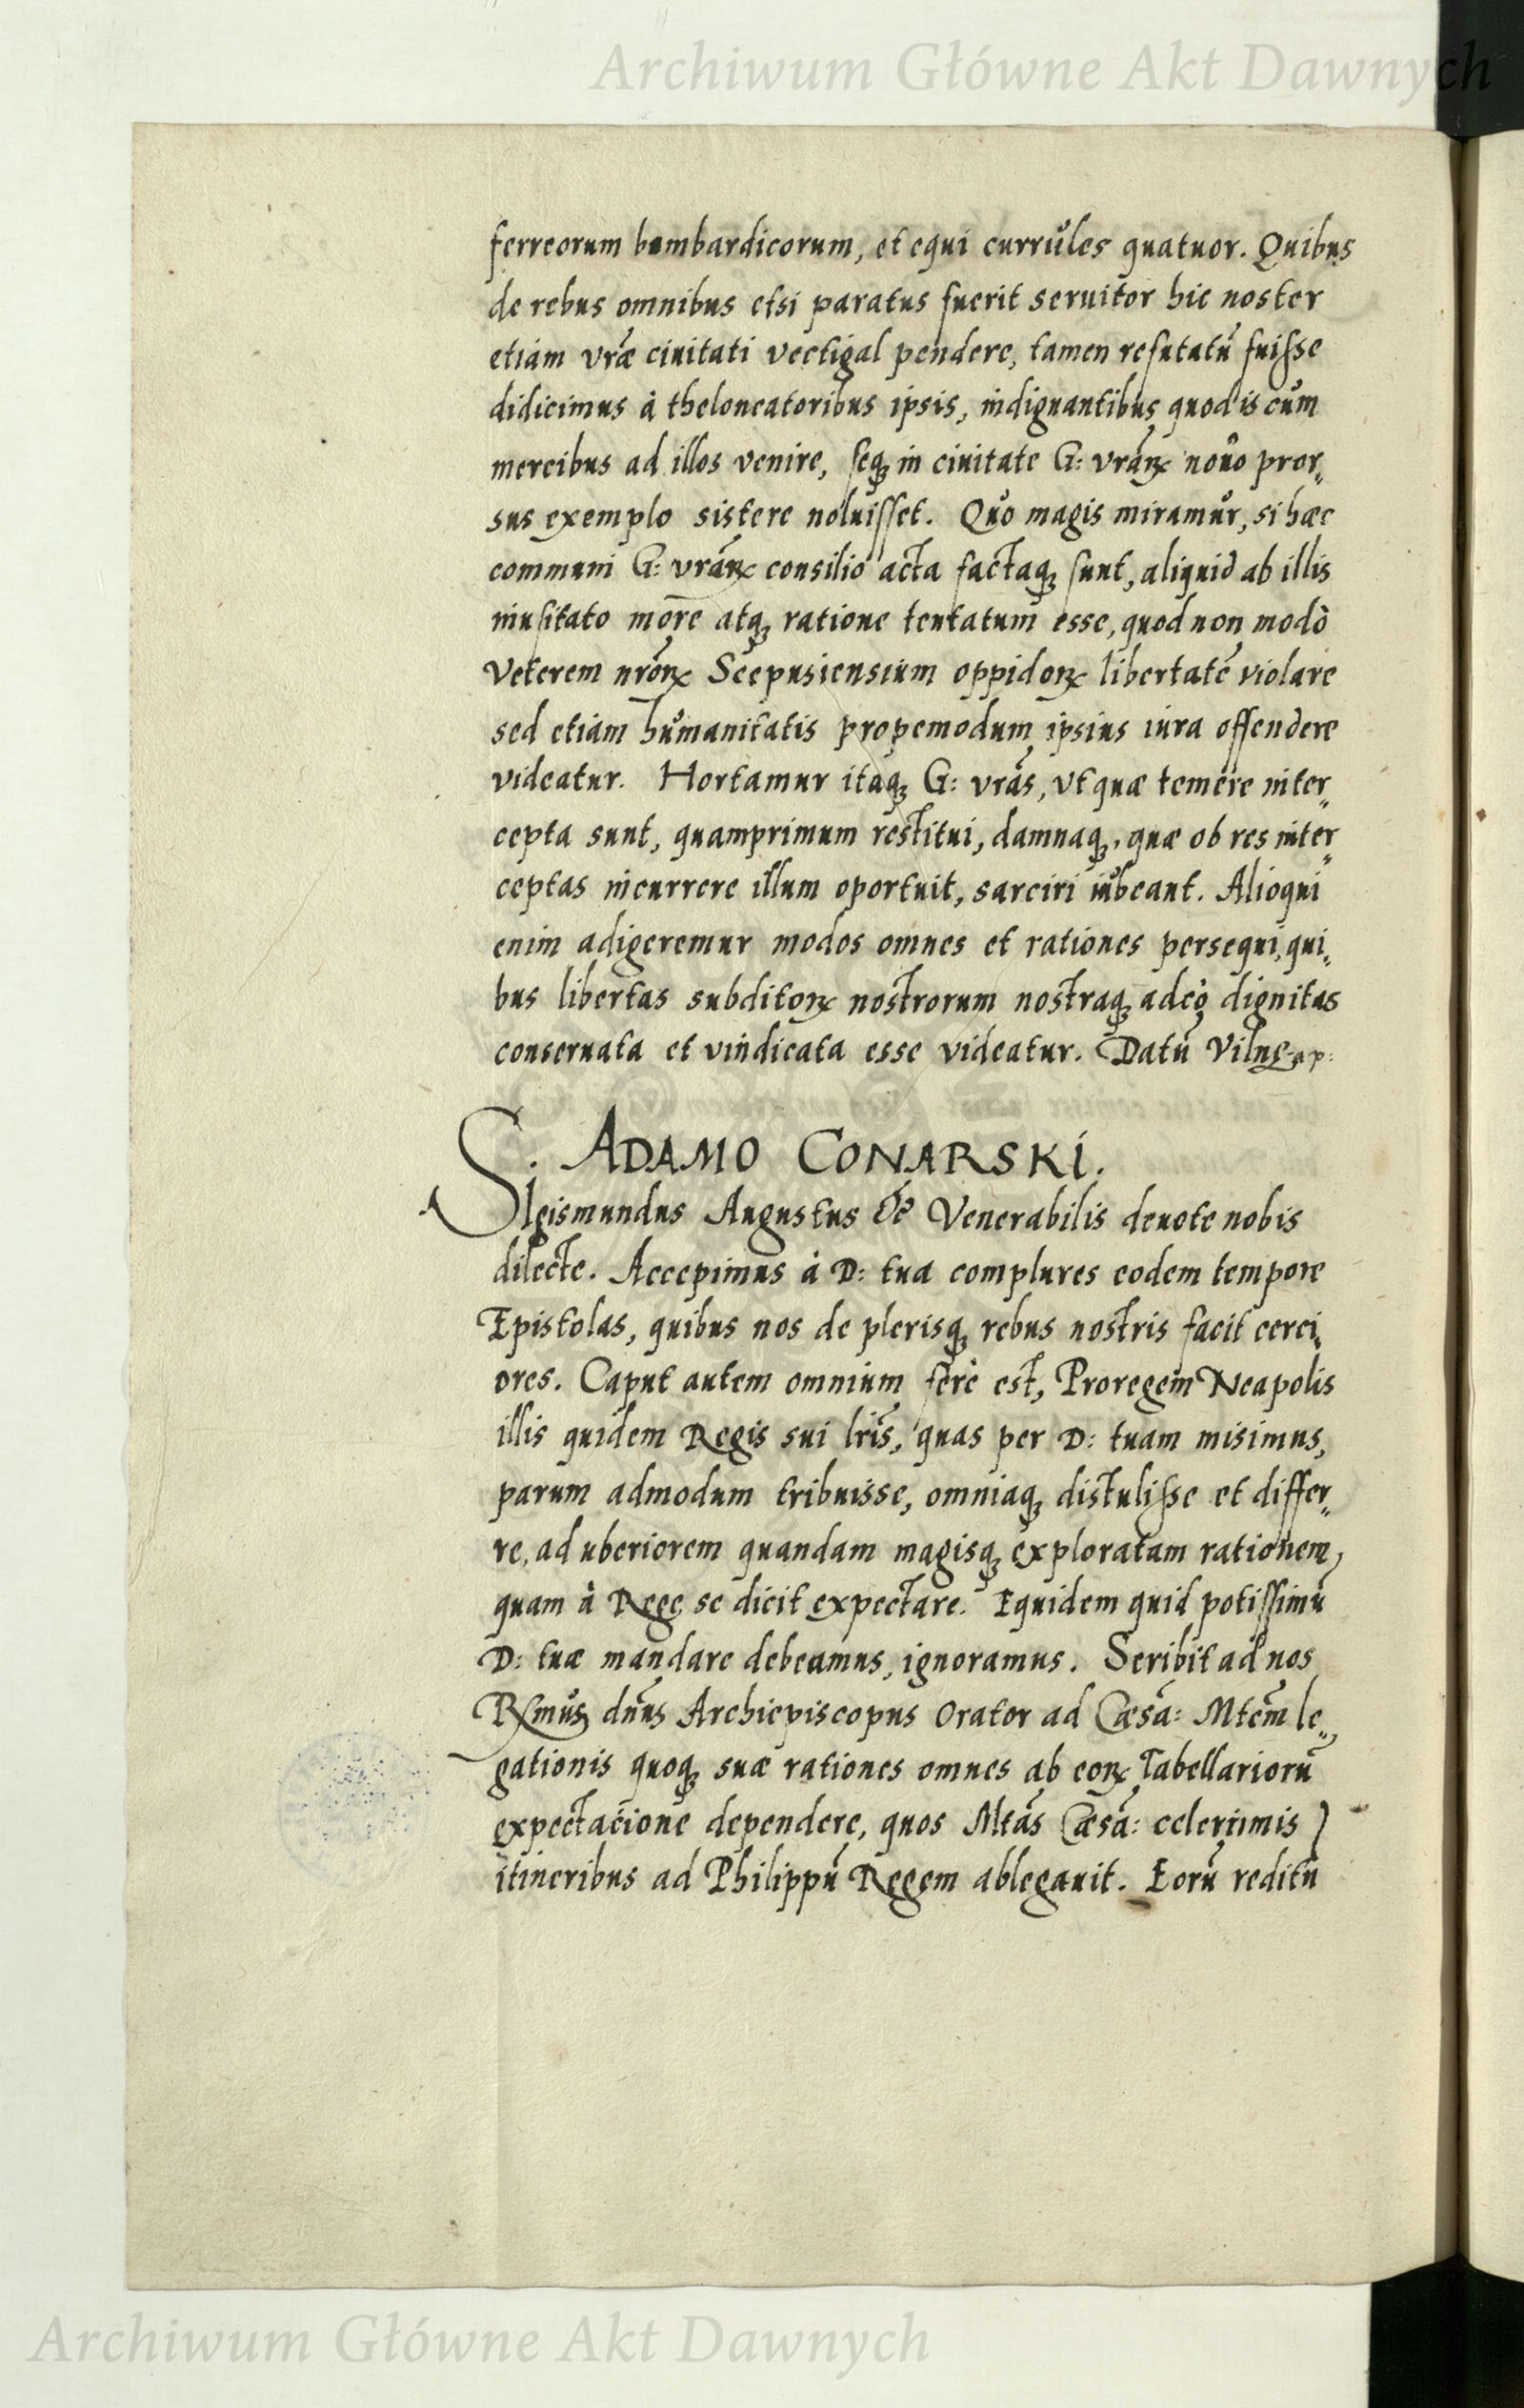 Archiwum Główne Akt Dawnych
ferreorum bombardicorum, et equi currules quatuor. Quibus
de rebus omnibus etsi paratus fuerit seruitor hic noster
etiam vrãe ciuitati vectigal pendere, tamen refutatũ fuisse
didicimus à theloneatoribus ipsis, indignantibus quod is cum
mercibus ad illos venire, seq; in ciuitate G: vrãrꝝ nouo pror„
sus exemplo sistere noluisset. Quo magis miramur, si hæc
communi G: vrãrꝝ consilio acta factaq; sunt, aliquid ab illis
inusitato more atq; ratione tentatum esse, quod non modò
Veterem nrõrꝝ Scepusiensium oppidorꝝ libertatẽ violare
sed etiam humanitatis propemodum ipsius iura offendere
videatur. Hortamur itaq; G: vrãs, vt quæ temere inter„
cepta sunt, quamprimum restitui, damnaq;, quæ ob res inter„
ceptas incurrere illum oportuit, sarciri iubeant. Alioqui
enim adigeremur modos omnes et rationes persequi, qui„
bus libertas subditorꝝ nostrorum nostraq; adeò dignitas
conseruata et vindicata esse videatur. Datũ Vilnę
S. ADAMO CONARSKI.
SIgismundus Augustus &c Venerabilis deuote nobis
dilecte. Accepimus à D: tua complures eodem tempore
Epistolas, quibus nos de plerisq; rebus nostris facit cerci„
ores. Caput autem omnium ferè est, Proregem Neapolis
illis quidem Regis sui lrĩs, quas per D: tuam misimus,
parum admodum tribuisse, omniaq; distulisse et differ„
re, ad uberiorem quandam magisq; exploratam rationem,
quam à Rege se dicit expectare. Equidem quid potissimũ
D: tuæ mandare debeamus, ignoramus. Scribit ad nos
Rx̃mus dñus Archiepiscopus Orator ad Cæsã: Mtẽm le„
gationis quoq; suæ rationes omnes ab eorꝝ Tabellariorũ
expectacione dependere, quos Mtãs Cæsã: celerrimis
itineribus ad Philippũ Regem ablegauit. Eorũ reditu
Archiwum Główne Akt Dawnych